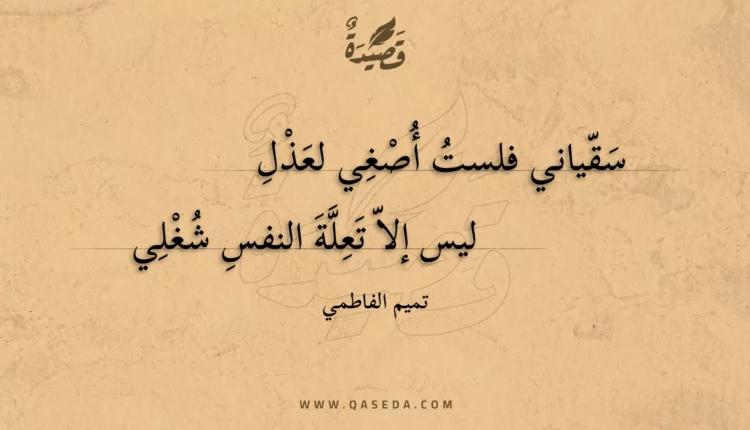 قَصِيدَةٌ
سَقّياني فلستُ أُصْغِي لعَذْلِ
ليس إلاّ تَعِلَّةَ النفسِ شُغْلِي
تميم الفاطمي
WWW.QASEDA.COM